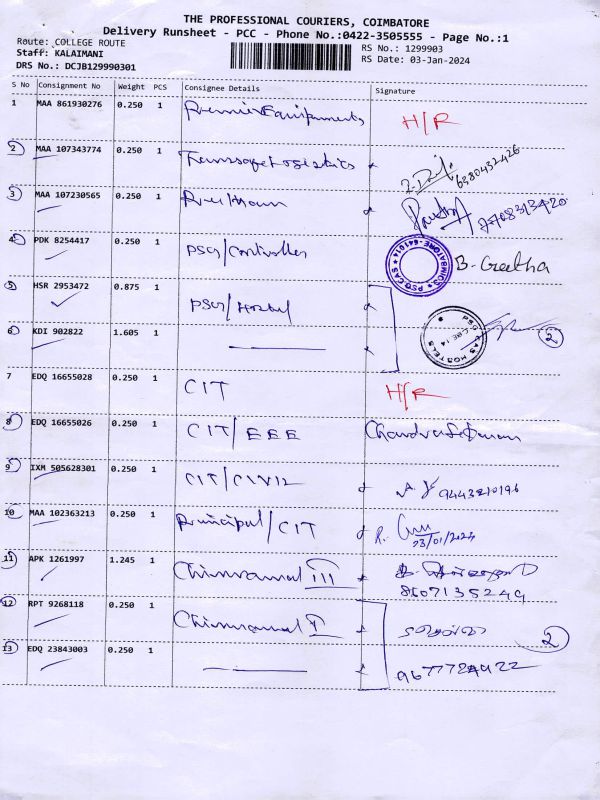 THE PROFESSIONAL COURIERS, COIMBATORE
Delivery Runsheet - PCC - Phone No.:0422-3505555 - Page No.:1
Route: COLLEGE ROUTE
RS No.: 1299903
Staff: KALAIMANI
RS Date: 03-Jan-2024
DRS No.: DCJB129990301
S No Consignment No Weight PCS Consignee Details Signature
1 MAA 861930276 0.250 1 Premier Equipments H/R
2 MAA 107343774 0.250 1 Transsafe Logistics 6380432426
3 MAA 107230565 0.250 1
4 PDK 8254417 0.250 1 PSG/Controller B. Geetha
5 HSR 2953472 0.875 1 PSG/Hostel
6 KDI 902822 1.605 1 2
7 EDQ 16655028 0.250 1 CIT H/R
8 EDQ 16655026 0.250 1 CIT/EEE Chandrasekaran
9 IXM 505628301 0.250 1 CIT/CIVIL 9443210196
10 MAA 102363213 0.250 1 Principal/CIT R. 23/01/2024
11 APK 1261997 1.245 1 Chinnamal III 8607135249
12 RPT 9268118 0.250 1 Chinnamal I 2
13 EDQ 23843003 0.250 1 9677724922